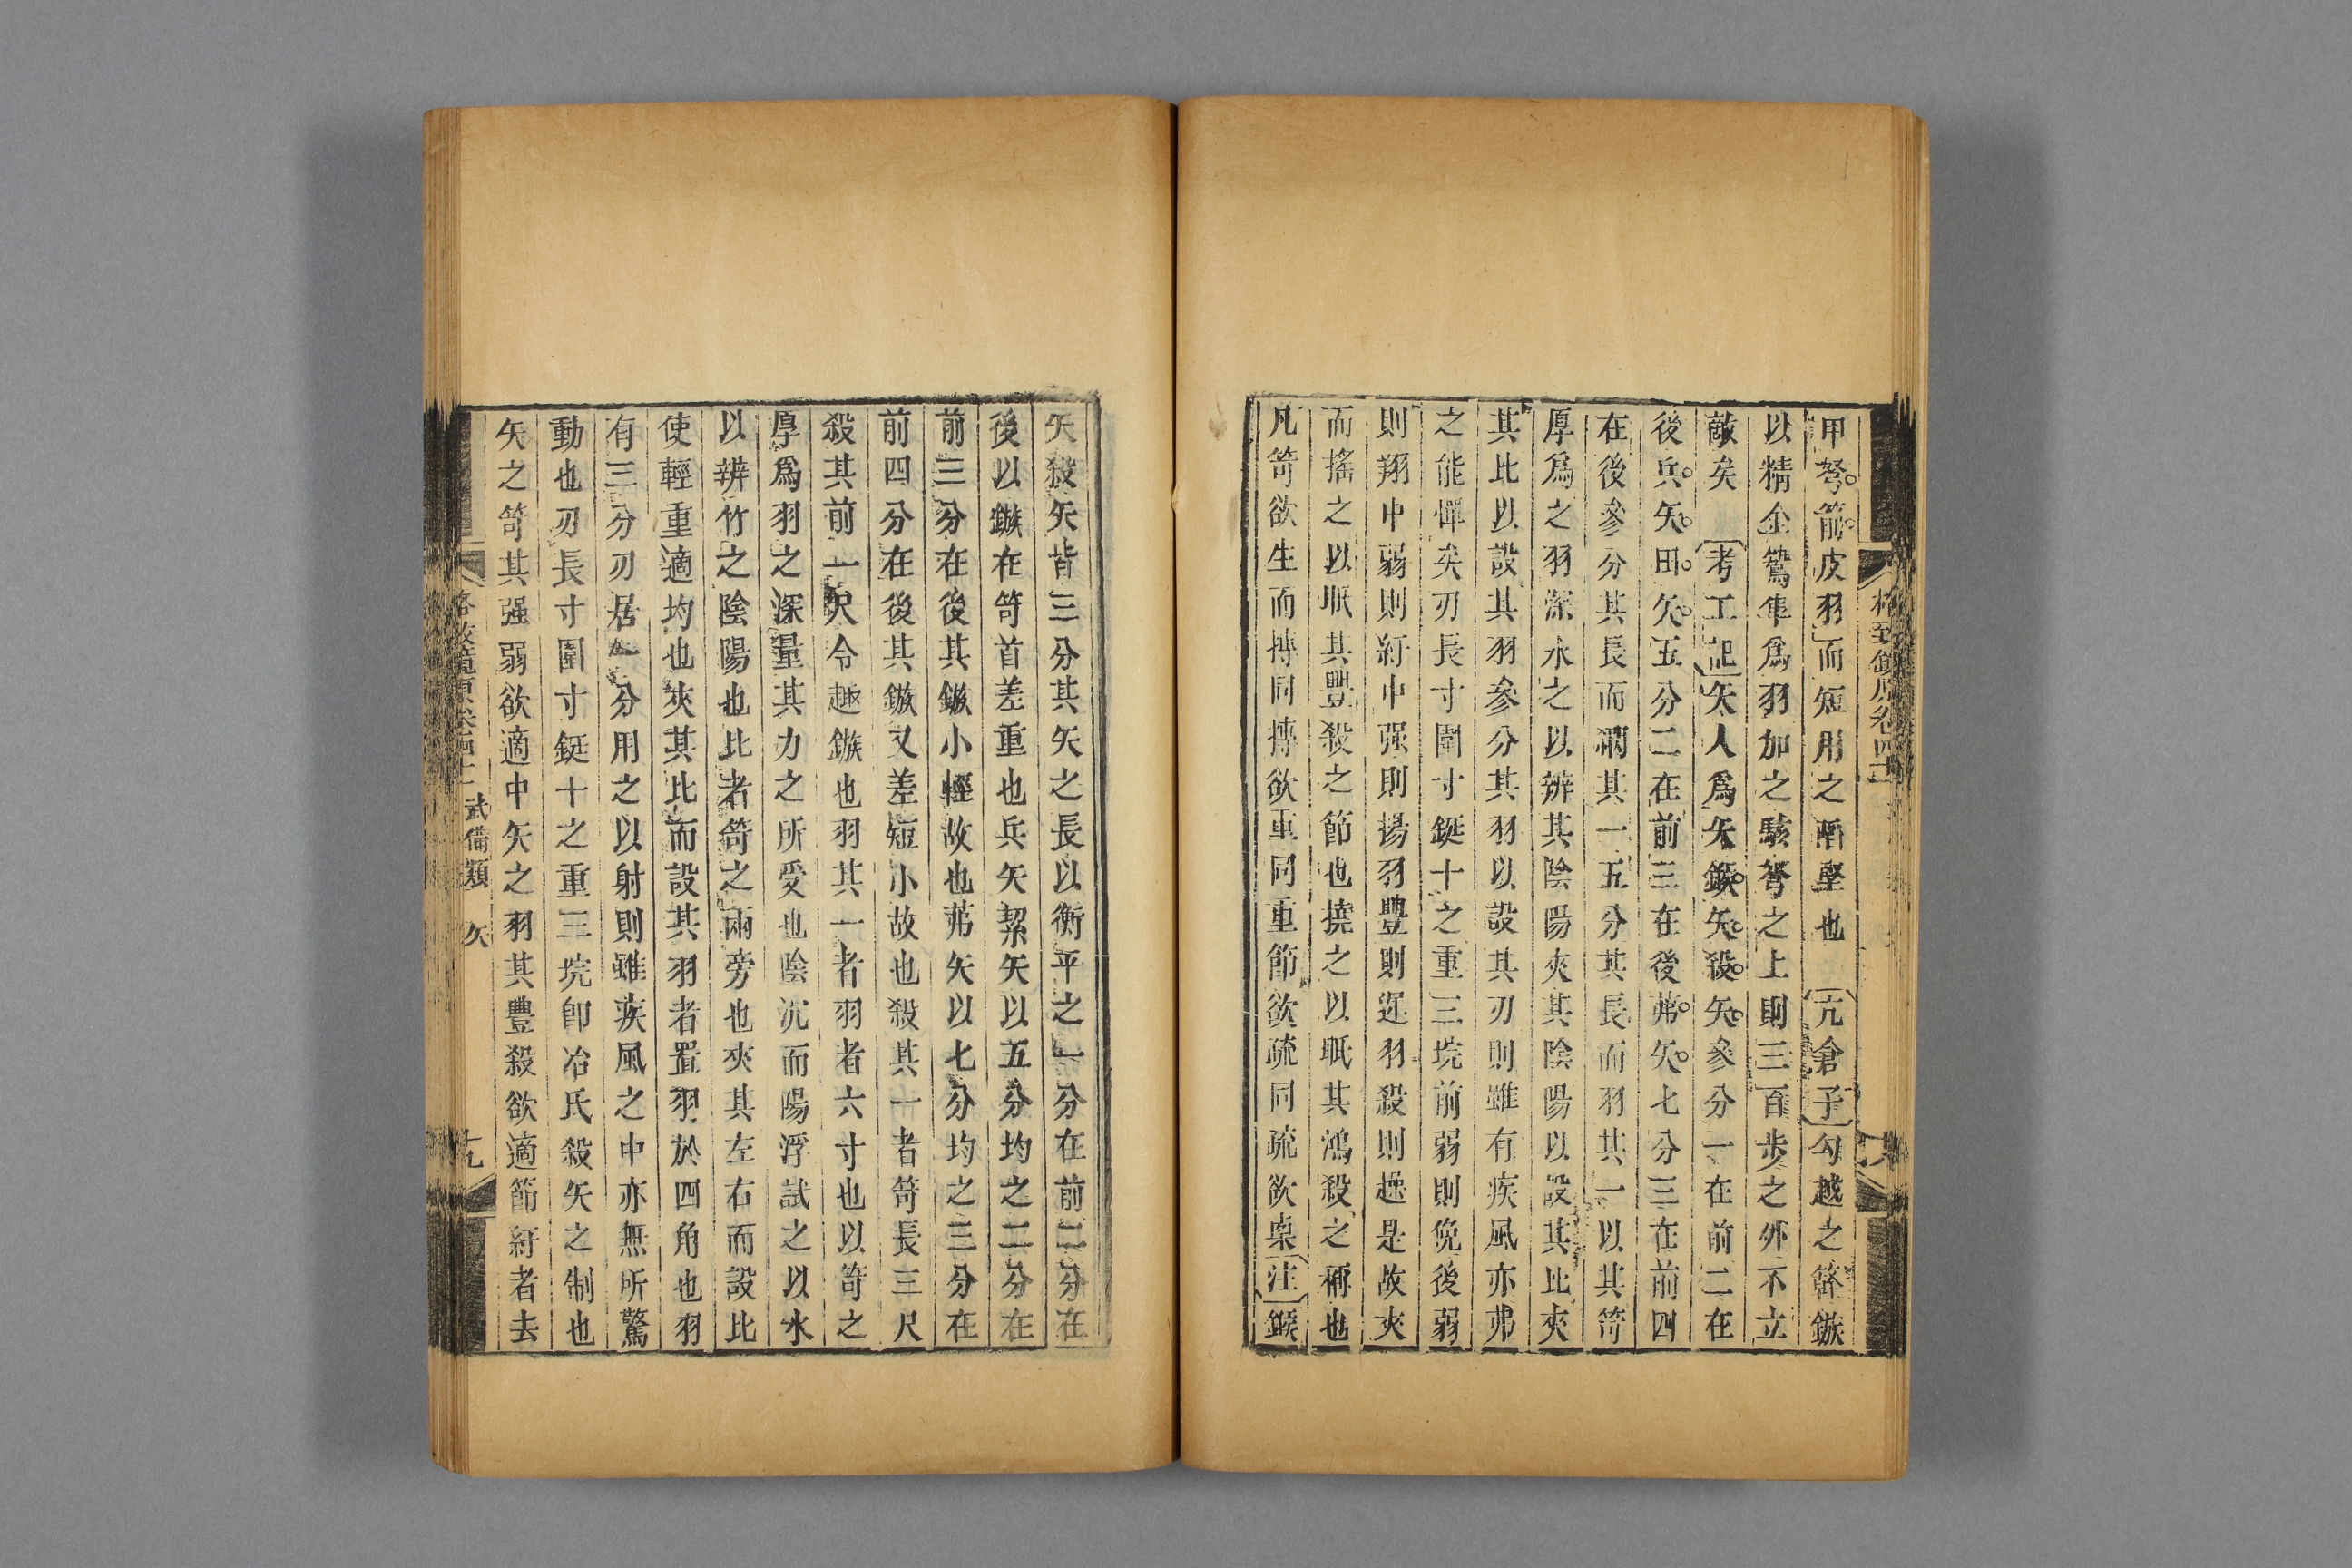 甲弩箭皮羽而短用之陷堅也　亢倉子勾越之簳鏃
以精金鷙隼爲羽加之駭弩之上則三百步之外不立
敵矣　考工記矢人爲矢鍭矢殺矢參分一在前二在
後兵矢田矢五分二在前三在後茀矢七分三在前四
在後參分其長而綗其一五分其長而羽其一以其笴
厚爲之羽深水之以辨其陰陽夾其陰陽以設其比夾
其比以設其羽參分其羽以設其刃則雖有疾風亦弗
之能憚矣刃長寸圍寸鋌十之重三垸前弱則俛後弱
則翔中弱則紆中强則揚羽豐則遲羽殺則趮是故夾
而搖之以眡其豐殺之節也撓之以眡其鴻殺之稱也
凡笴欲生而摶同摶欲重同重節欲疏同疏欲㮚注鍭
矢殺矢皆三分其矢之長以衡平之一分在前二分在
後以鏃在笴首差重也兵矢絜矢以五分均之二分在
前三分在後其鏃小輕故也茀矢以七分均之三分在
前四分在後其鏃又差短小故也殺其一者笴長三尺
殺其前一尺令趣鏃也羽其一者羽者六寸也以笴之
厚爲羽之深量其力之所受也陰沉而陽浮試之以水
以辨竹之陰陽也比者笴之兩旁也夾其左右而設比
使輕重適均也夾其比而設其羽者置羽於四角也羽
有三分刃居一分用之以射則雖疾風之中亦無所驚
動也刃長寸圍寸鋌十之重三垸卽冶氏殺矢之制也
矢之笴其强弱欲適中矢之羽其豐殺欲適節紆者去
格致鏡原卷四十二　武備類　矢　十九